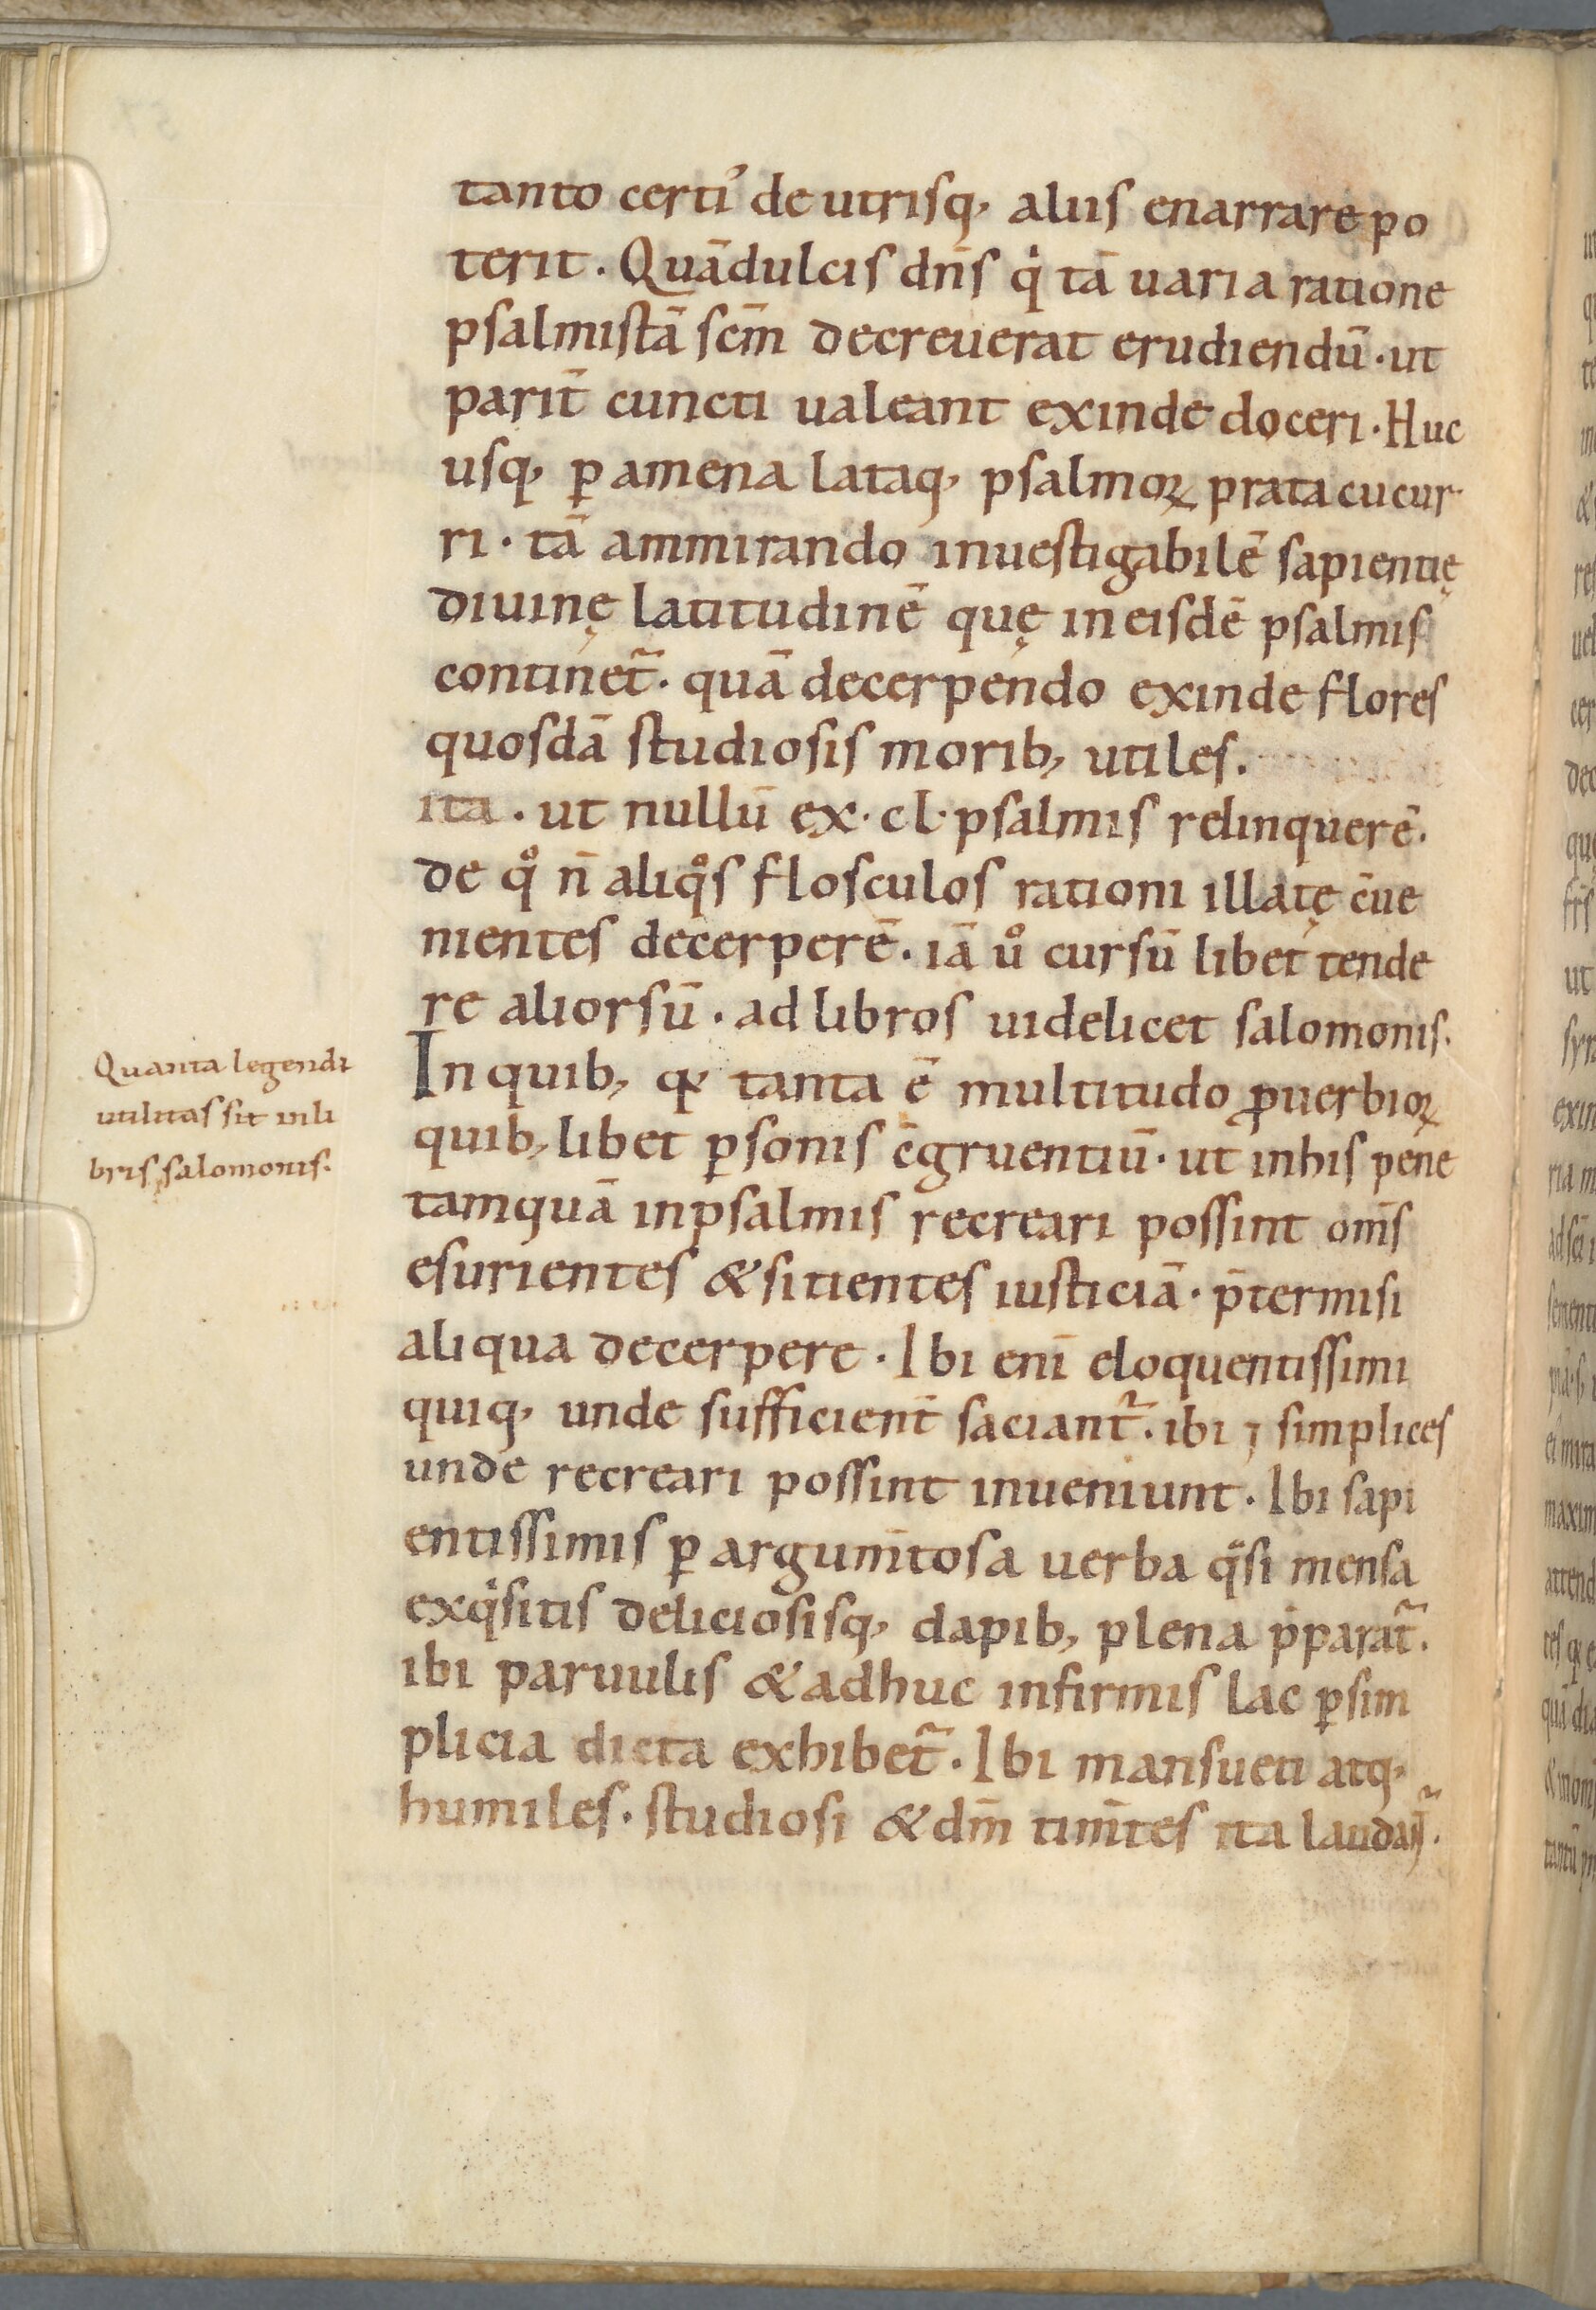 tanto certiꝰ de utrisq; aliis enarrare po
terit. Quādulcis dn̄s qͥ tā uaria ratione
psalmistā sc̄m decreuerat erudiendū. ut
parit̄ cuncti ualeant exinde doceri. Huc
usq; ꝑ amena lataq; psalmoꝝ prata cucur
ri. tā ammirando inuestigabilē sapientię
diuinę latitudinē quę in eisdē psalmis
continet᷑. quā decerpendo exinde flores
quosdā studiosis morib; utiles.
ita. ut nullū ex. cl. psalmis relinquerē.
de qͦ n̄ aliqͦs flosculos rationi illatę c̄ue
nientes decerperē. iā uͦ cursū libet tende
re aliorsū. ad libros uidelicet salomonis.
Quanta legendi
utilitas sit inli
bris salomonis.
In quib; qꝛ tanta ē multitudo ꝓuerbioꝝ
quib;libet ꝑsonis c̄gruentiū. ut inhis pene
tamquā inpsalmis recreari possint om̄s
esurientes & sitientes iusticiā. p̄termisi
aliqua decerpere. Ibi eni̅ eloquentissimi
quiq; unde sufficient̄ saciant᷑. ibi ⁊ simplices
unde recreari possint inueniunt. Ibi sapi
entissimis ꝑ argum̄tosa uerba qͣsi mensa
exqͥsitis deliciosisq; dapib; plena p̄parat᷑.
ibi paruulis & adhuc infirmis lac ꝑsim
plicia dicta exhibet᷑. Ibi mansueti atq;
humiles. studiosi & dm̄ tim̄tes ita laudant᷑.